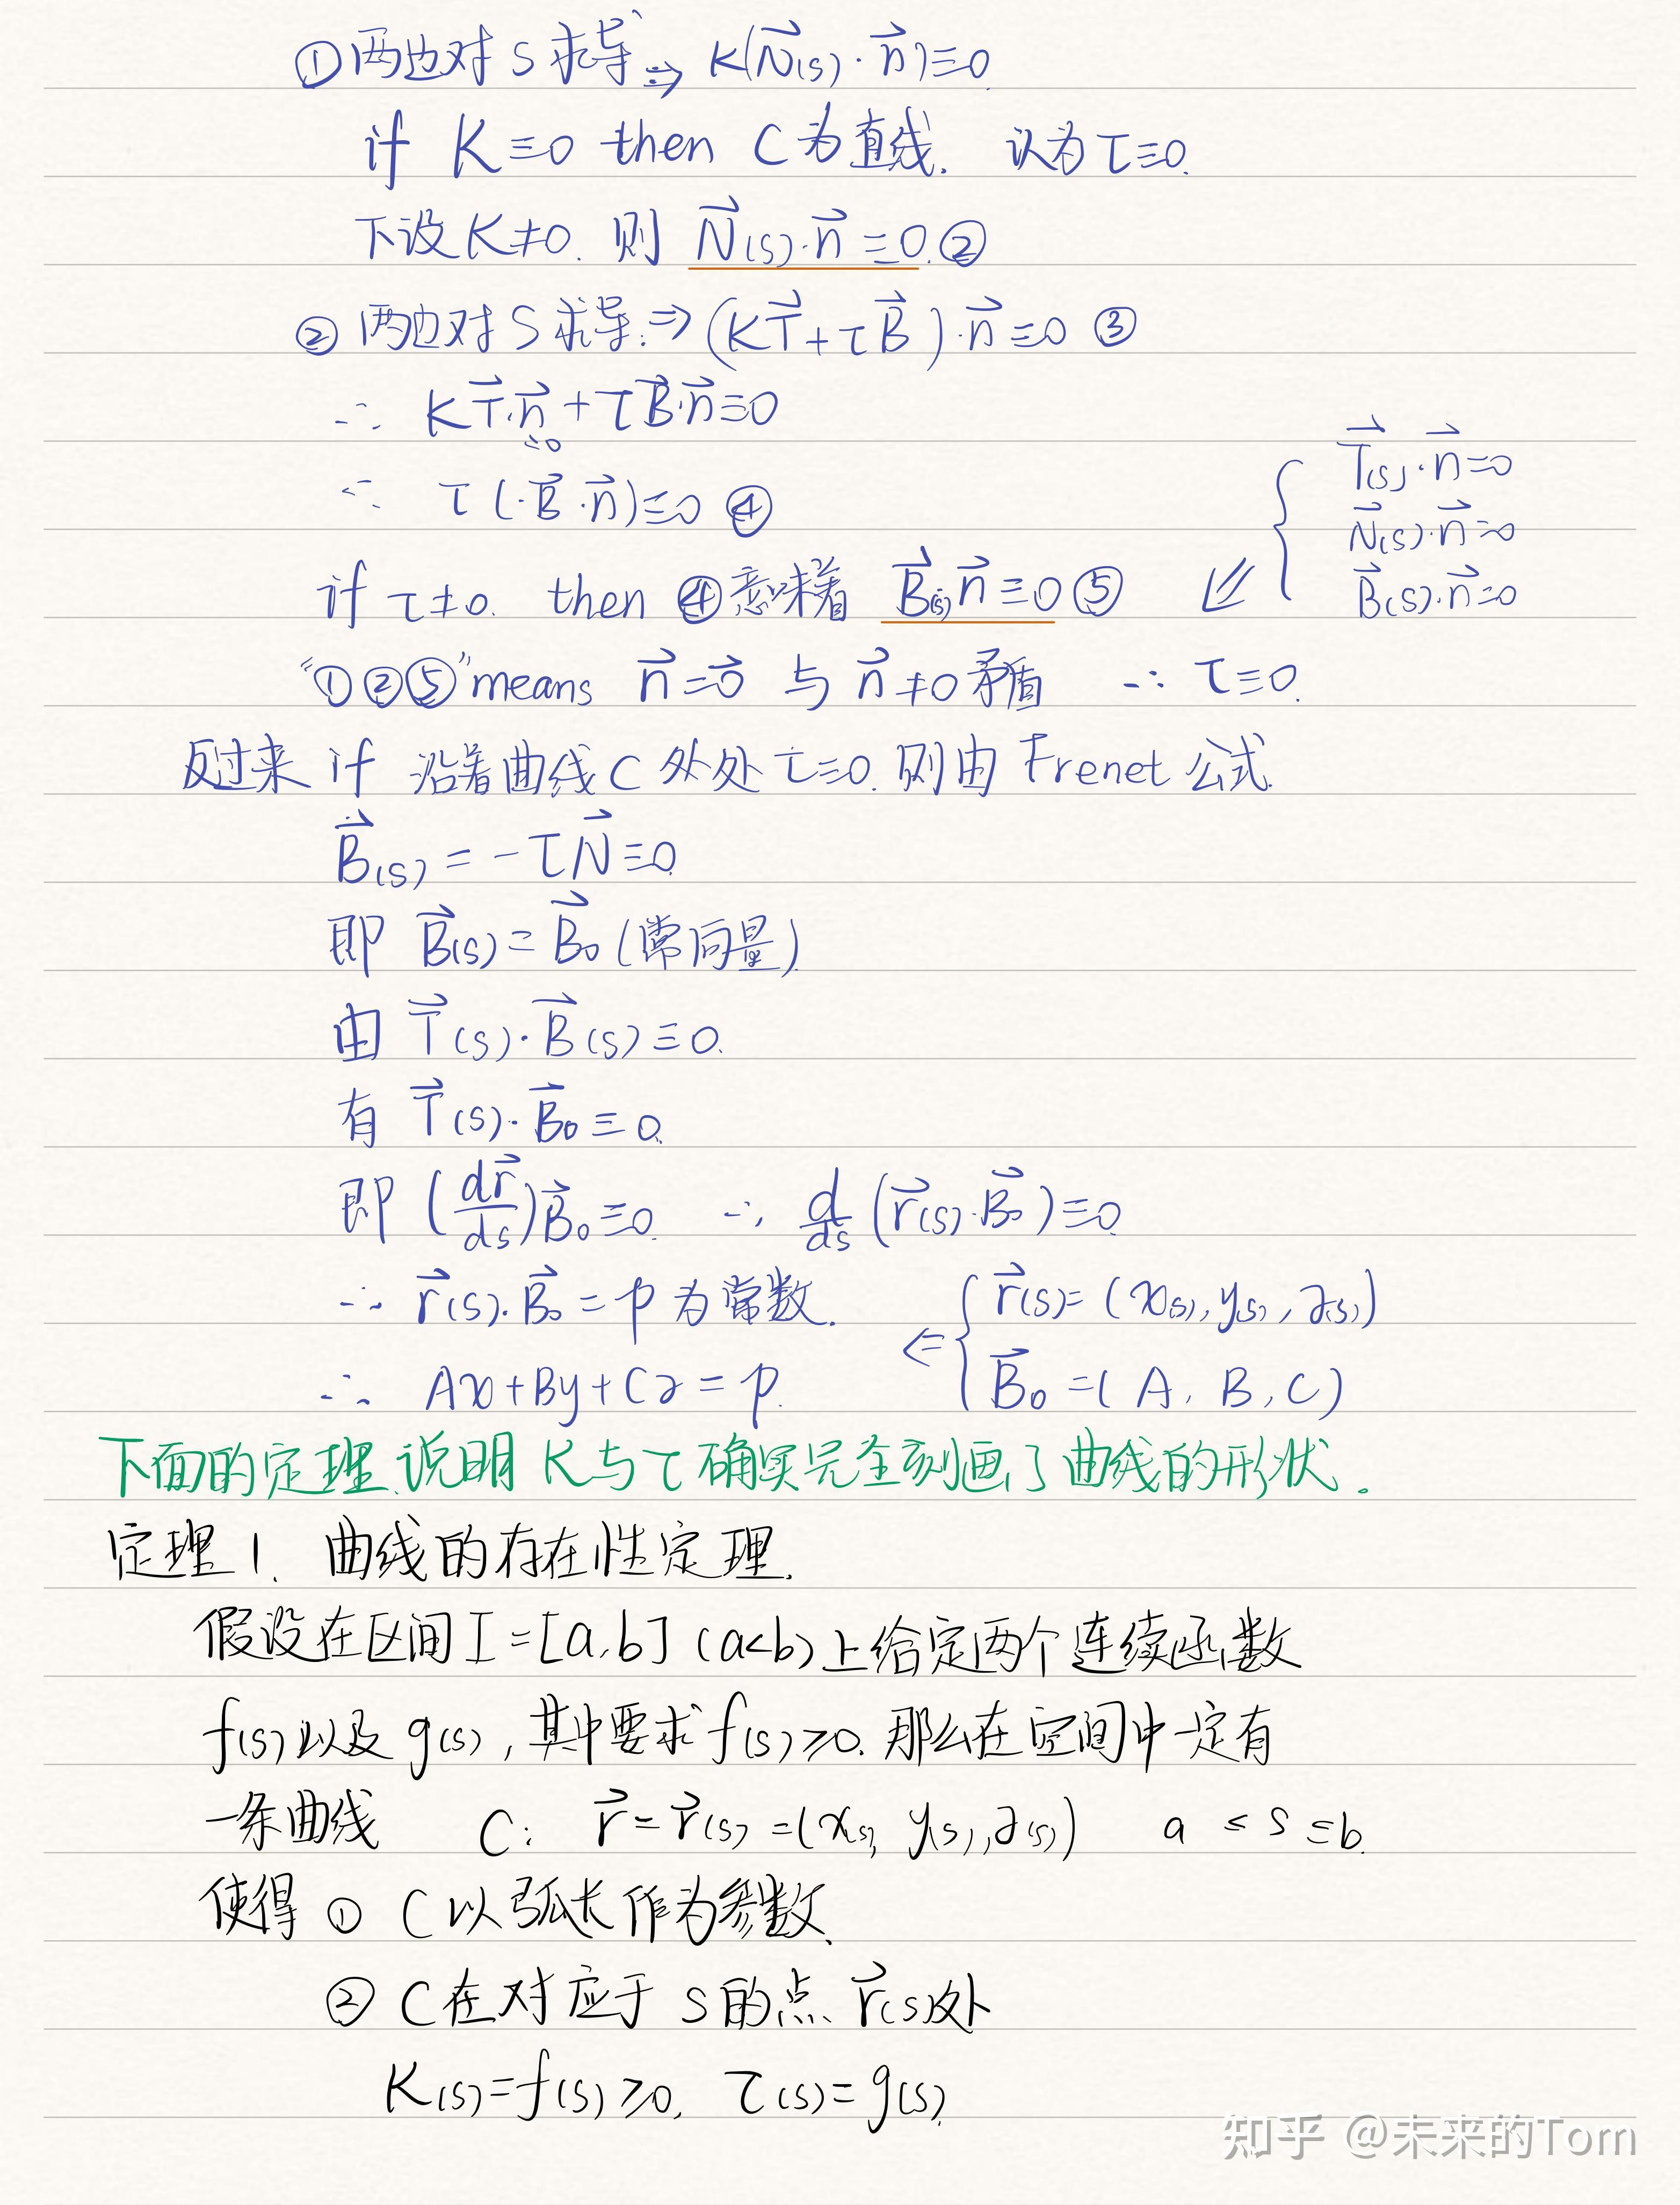 ①两边对S求导⇒ K(N⃗(s)·n⃗)≡0
if K≡0 then C为直线. 认为τ≡0.
下设K≠0. 则 N⃗(s)·n⃗≡0.②
②两边对S求导:⇒(KT⃗+τB⃗)·n⃗≡0 ③
∴ KT⃗·n⃗+τB⃗·n⃗≡0
=0
∴ τ(·B⃗·n⃗)≡0 ④
T⃗(s)·n⃗=0
N⃗(s)·n⃗=0
B⃗(s)·n⃗=0
if τ≠0. then ④意味着 B⃗(s)n⃗≡0⑤ ⇙
“①②⑤”means n⃗=0⃗ 与 n⃗≠0矛盾 ∴ τ≡0.
反过来 if 沿着曲线C处处τ≡0.则由Frenet公式
B⃗(s)=-τN⃗≡0
即 B⃗(s)=B⃗₀(常向量)
由 T⃗(s)·B⃗(s)≡0.
有 T⃗(s)·B⃗₀≡0.
即 (dr⃗/ds)B⃗₀≡0. ∴ d/ds(r⃗(s)·B⃗₀)≡0
∴ r⃗(s)·B⃗₀=p为常数. ⇐ { r⃗(s)=(x(s),y(s),z(s))
∴ Ax+By+Cz=p. B⃗₀=(A,B,C)
下面的定理说明K与τ确实完全刻画了曲线的形状.
定理1. 曲线的存在性定理.
假设在区间I=[a,b](a<b)上给定两个连续函数
f(s)以及g(s),其中要求f(s)≥0.那么在空间中一定有
一条曲线 C: r⃗=r⃗(s)=(x(s),y(s),z(s)) a≤s≤b.
使得 ① C以弧长作为参数.
② C在对应于S的点r⃗(s)处
K(s)=f(s)≥0, τ(s)=g(s)
知乎 @未来的Tom